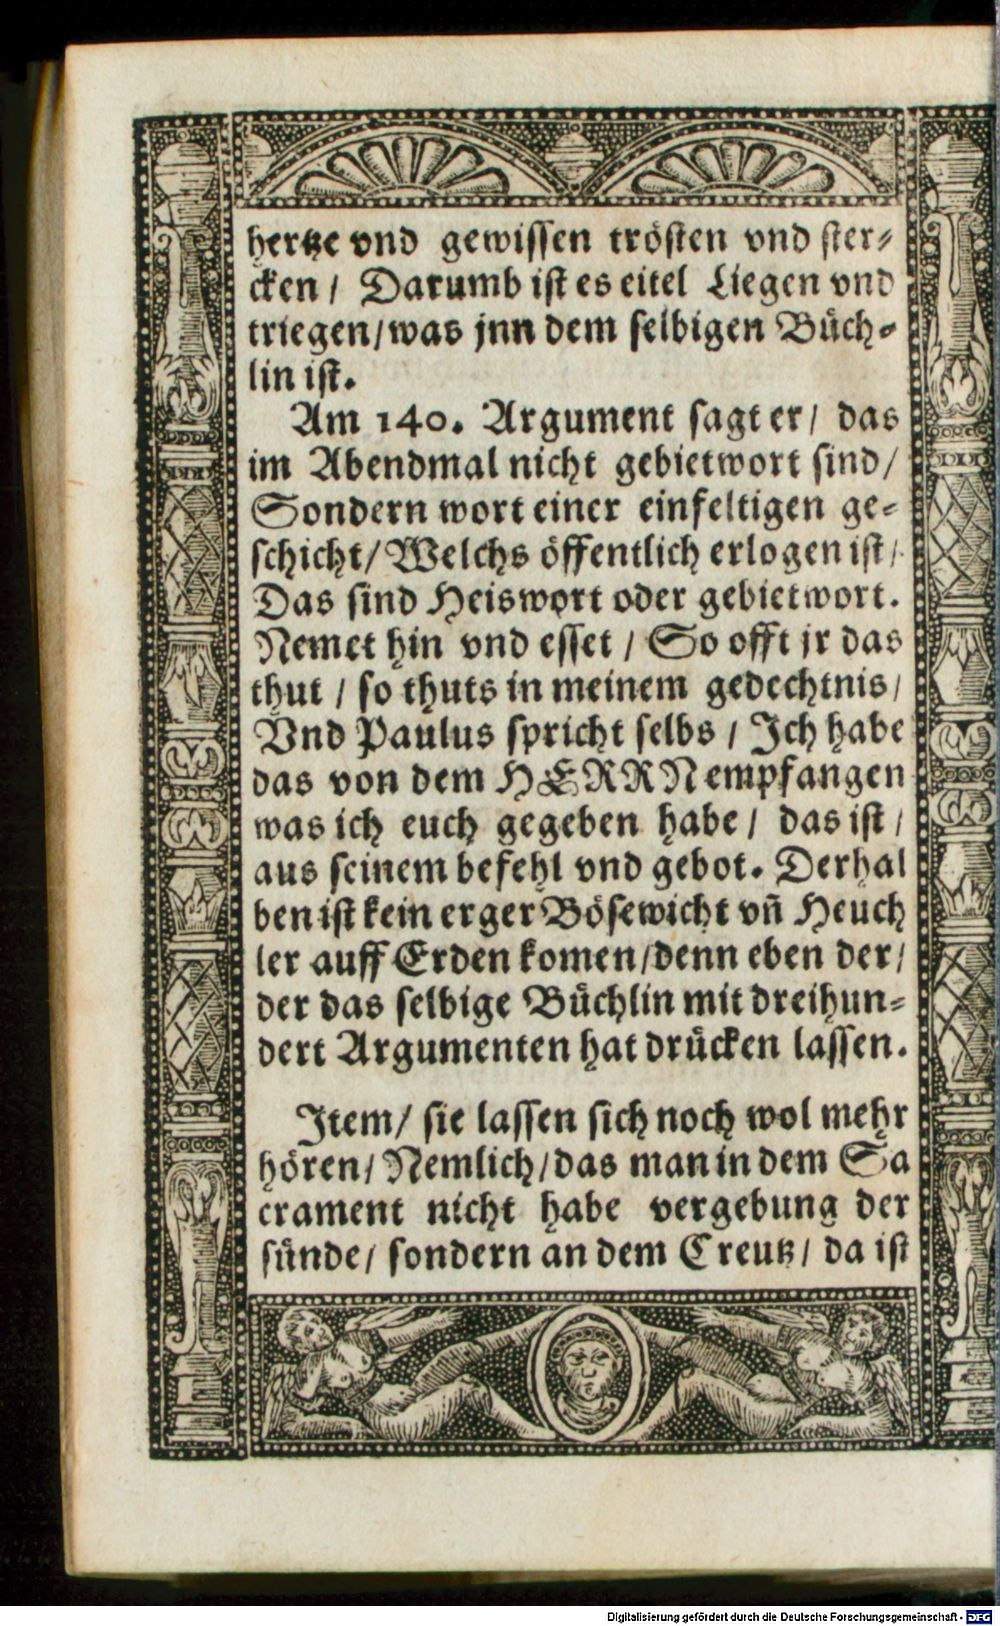 hertze vnd gewissen trösten vnd ster⸗
cken / Darumb ist es eitel Liegen vnd
triegen/was jnn dem selbigen Büch⸗
lin ist.
Am 140. Argument sagt er/ das
im Abendmal nicht gebietwort sind/
Sondern wort einer einfeltigen ge⸗
schicht/Welchs öffentlich erlogen ist/
Das sind Heiswort oder gebietwort.
Nemet hin vnd esset / So offt jr das
thut / so thuts in meinem gedechtnis/
Vnd Paulus spricht selbs / Ich habe
das von dem HERRN empfangen
was ich euch gegeben habe/ das ist /
aus seinem befehl vnd gebot. Derhal
ben ist kein erger Bösewicht vñ Heuch
ler auff Erden komen/denn eben der/
der das selbige Büchlin mit dreihun⸗
dert Argumenten hat drücken lassen.
Item/ sie lassen sich noch wol mehr
hören/Nemlich/das man in dem Sa
crament nicht habe vergebung der
sünde/ sondern an dem Creutz/ da ist
Digitalisierung gefördert durch die Deutsche Forschungsgemeinschaft - DFG